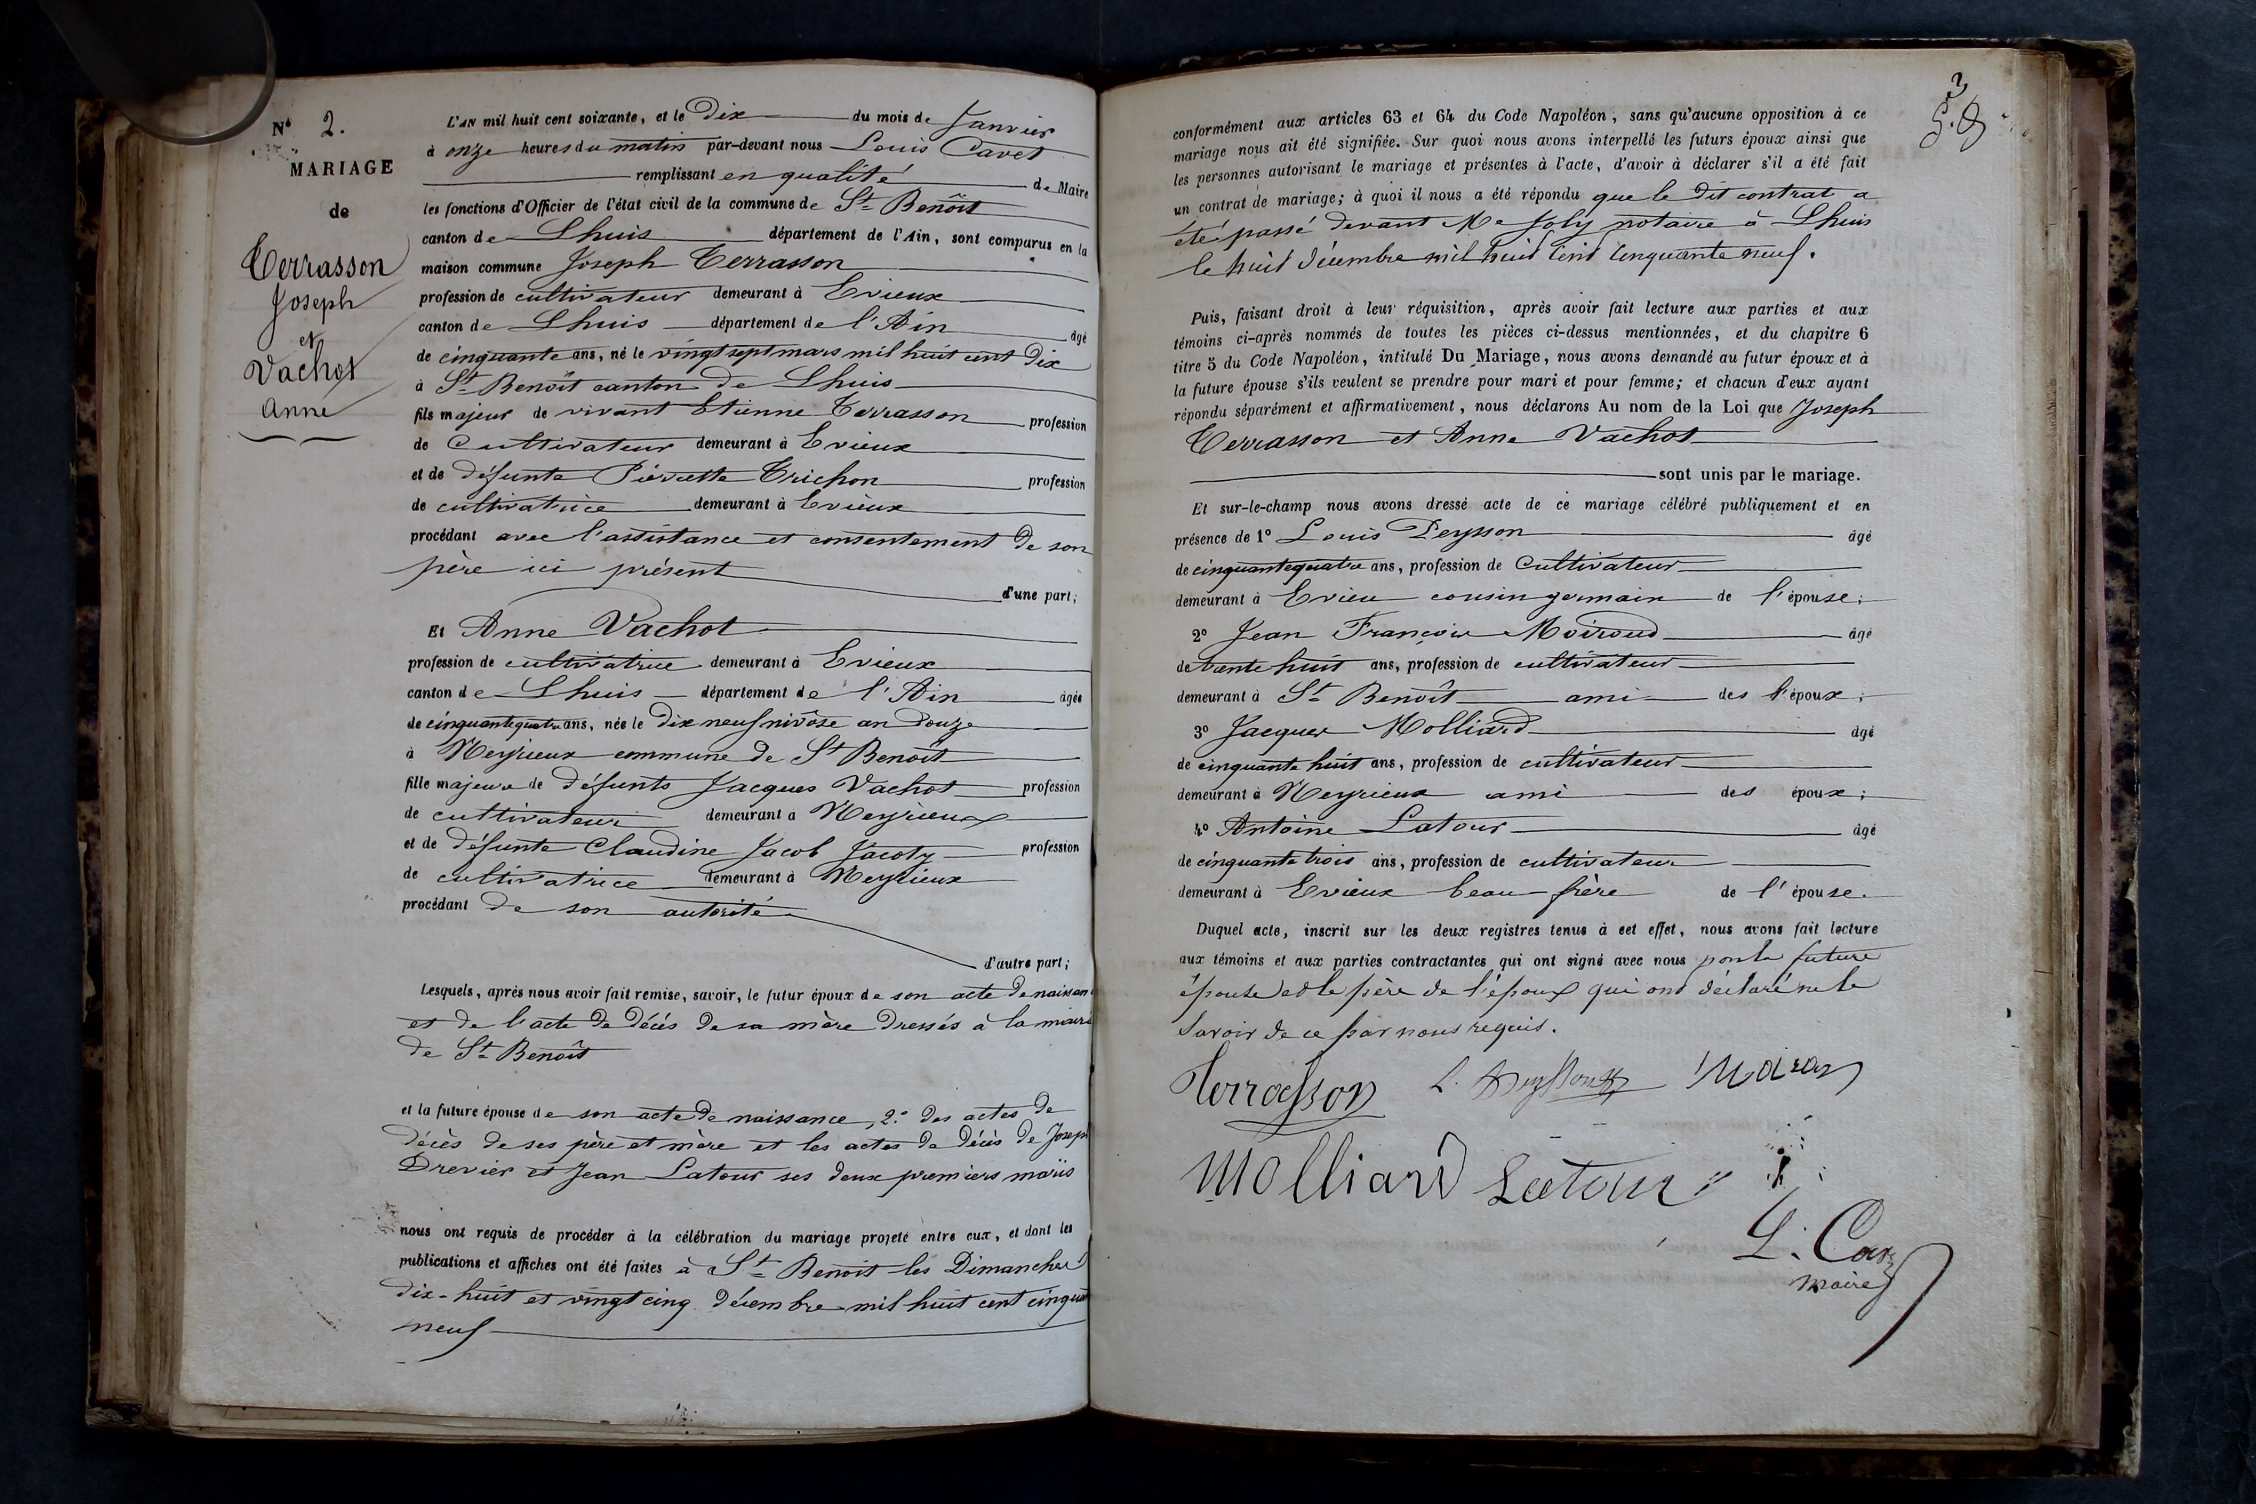 N° 2.
MARIAGE
de
Terrasson
Joseph
et
Vachot
Anne
L'AN mil huit cent soixante, et le Dix du mois de Janvier
à onze heures du matin par-devant nous Louis Cavet
remplissant en qualité de Maire
les fonctions d'Officier de l'état civil de la commune de St Benoît
canton de Lhuis département de l'Ain, sont comparus en la
maison commune Joseph Terrasson
profession de cultivateur demeurant à Evieux
canton de Lhuis département de l'Ain âgé
de cinquante ans, né le vingt sept mars mil huit cent Dix
à St Benoît canton de Lhuis
fils majeur de vivant Etienne Terrasson profession
de Cultivateur demeurant à Evieux
et de défunte Pierrette Trichon profession
de cultivatrice demeurant à Evieux
procédant avec l'assistance et consentement de son
père ici présent
d'une part;
Et Anne Vachot
profession de cultivatrice demeurant à Evieux
canton de Lhuis département de l'Ain âgée
de cinquante quatre ans, née le dix neuf nivôse an douze
à Meyrieux commune de St Benoît
fille majeure de défunts Jacques Vachot profession
de cultivateur demeurant à Meyrieux
et de défunte Claudine Jacob Jacoty profession
de cultivatrice demeurant à Meyrieux
procédant de son autorité
d'autre part;
Lesquels, après nous avoir fait remise, savoir, le futur époux de son acte de naissan
et de l'acte de décès de sa mère dressés à la mairie
de St Benoît
et la future épouse de son acte de naissance, 2° des actes de
décès de ses père et mère et les actes de décès de Joseph
Drevier et Jean Latour ses deux premiers maris
nous ont requis de procéder à la célébration du mariage projeté entre eux, et dont les
publications et affiches ont été faites à St Benoît les Dimanches
dix-huit et vingt cinq décembre mil huit cent cinquan
neuf
3
conformément aux articles 63 et 64 du Code Napoléon, sans qu'aucune opposition à ce
mariage nous ait été signifiée. Sur quoi nous avons interpellé les futurs époux ainsi que
les personnes autorisant le mariage et présentes à l'acte, d'avoir à déclarer s'il a été fait
un contrat de mariage; à quoi il nous a été répondu que le dit contrat a
été passé devant Me Joly notaire à Lhuis
le huit décembre mil huit cent cinquante neuf.
Puis, faisant droit à leur réquisition, après avoir fait lecture aux parties et aux
témoins ci-après nommés de toutes les pièces ci-dessus mentionnées, et du chapitre 6
titre 5 du Code Napoléon, intitulé Du Mariage, nous avons demandé au futur époux et à
la future épouse s'ils veulent se prendre pour mari et pour femme; et chacun d'eux ayant
répondu séparément et affirmativement, nous déclarons Au nom de la Loi que Joseph
Terrasson et Anne Vachot
sont unis par le mariage.
Et sur-le-champ nous avons dressé acte de ce mariage célébré publiquement et en
présence de 1° Louis Peysson âgé
de cinquante quatre ans, profession de Cultivateur
demeurant à Evieu cousin germain de l'épouse;
2° Jean François Moiroud âgé
de trente huit ans, profession de cultivateur
demeurant à St Benoît ami des l'époux;
3° Jacques Molliard âgé
de cinquante huit ans, profession de cultivateur
demeurant à Meyrieux ami des époux;
4° Antoine Latour âgé
de cinquante trois ans, profession de cultivateur
demeurant à Evieux beau-frère de l'épouse.
Duquel acte, inscrit sur les deux registres tenus à cet effet, nous avons fait lecture
aux témoins et aux parties contractantes qui ont signé avec nous non la future
épouse et le père de l'époux qui ont déclaré ne le
savoir de ce par nous requis.
Terrasson
Molliard Latour
L. Cav
maire